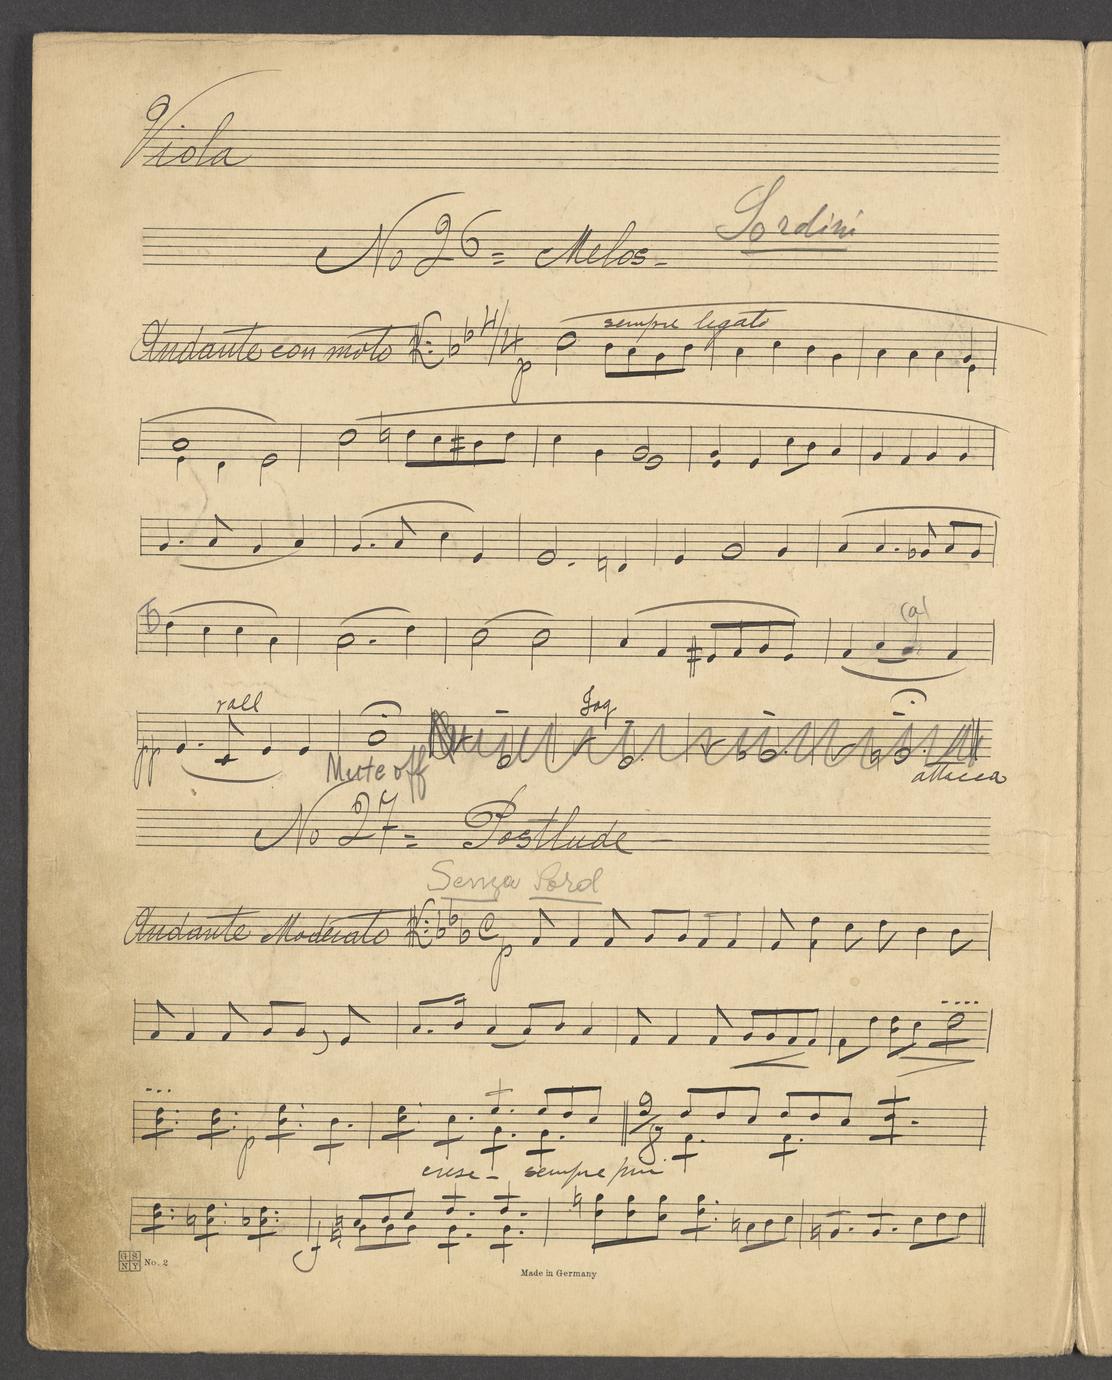 Viola
No 26 = Melos - Sordini
Andante con moto 4/4 p sempre legato
(a)
pp rall Fag
Mute off attacca
No 27 = Postlude -
Senza Sord
Andante Moderato C p
p 9/8
cresc - sempre piu
f
G S N Y No. 2
Made in Germany